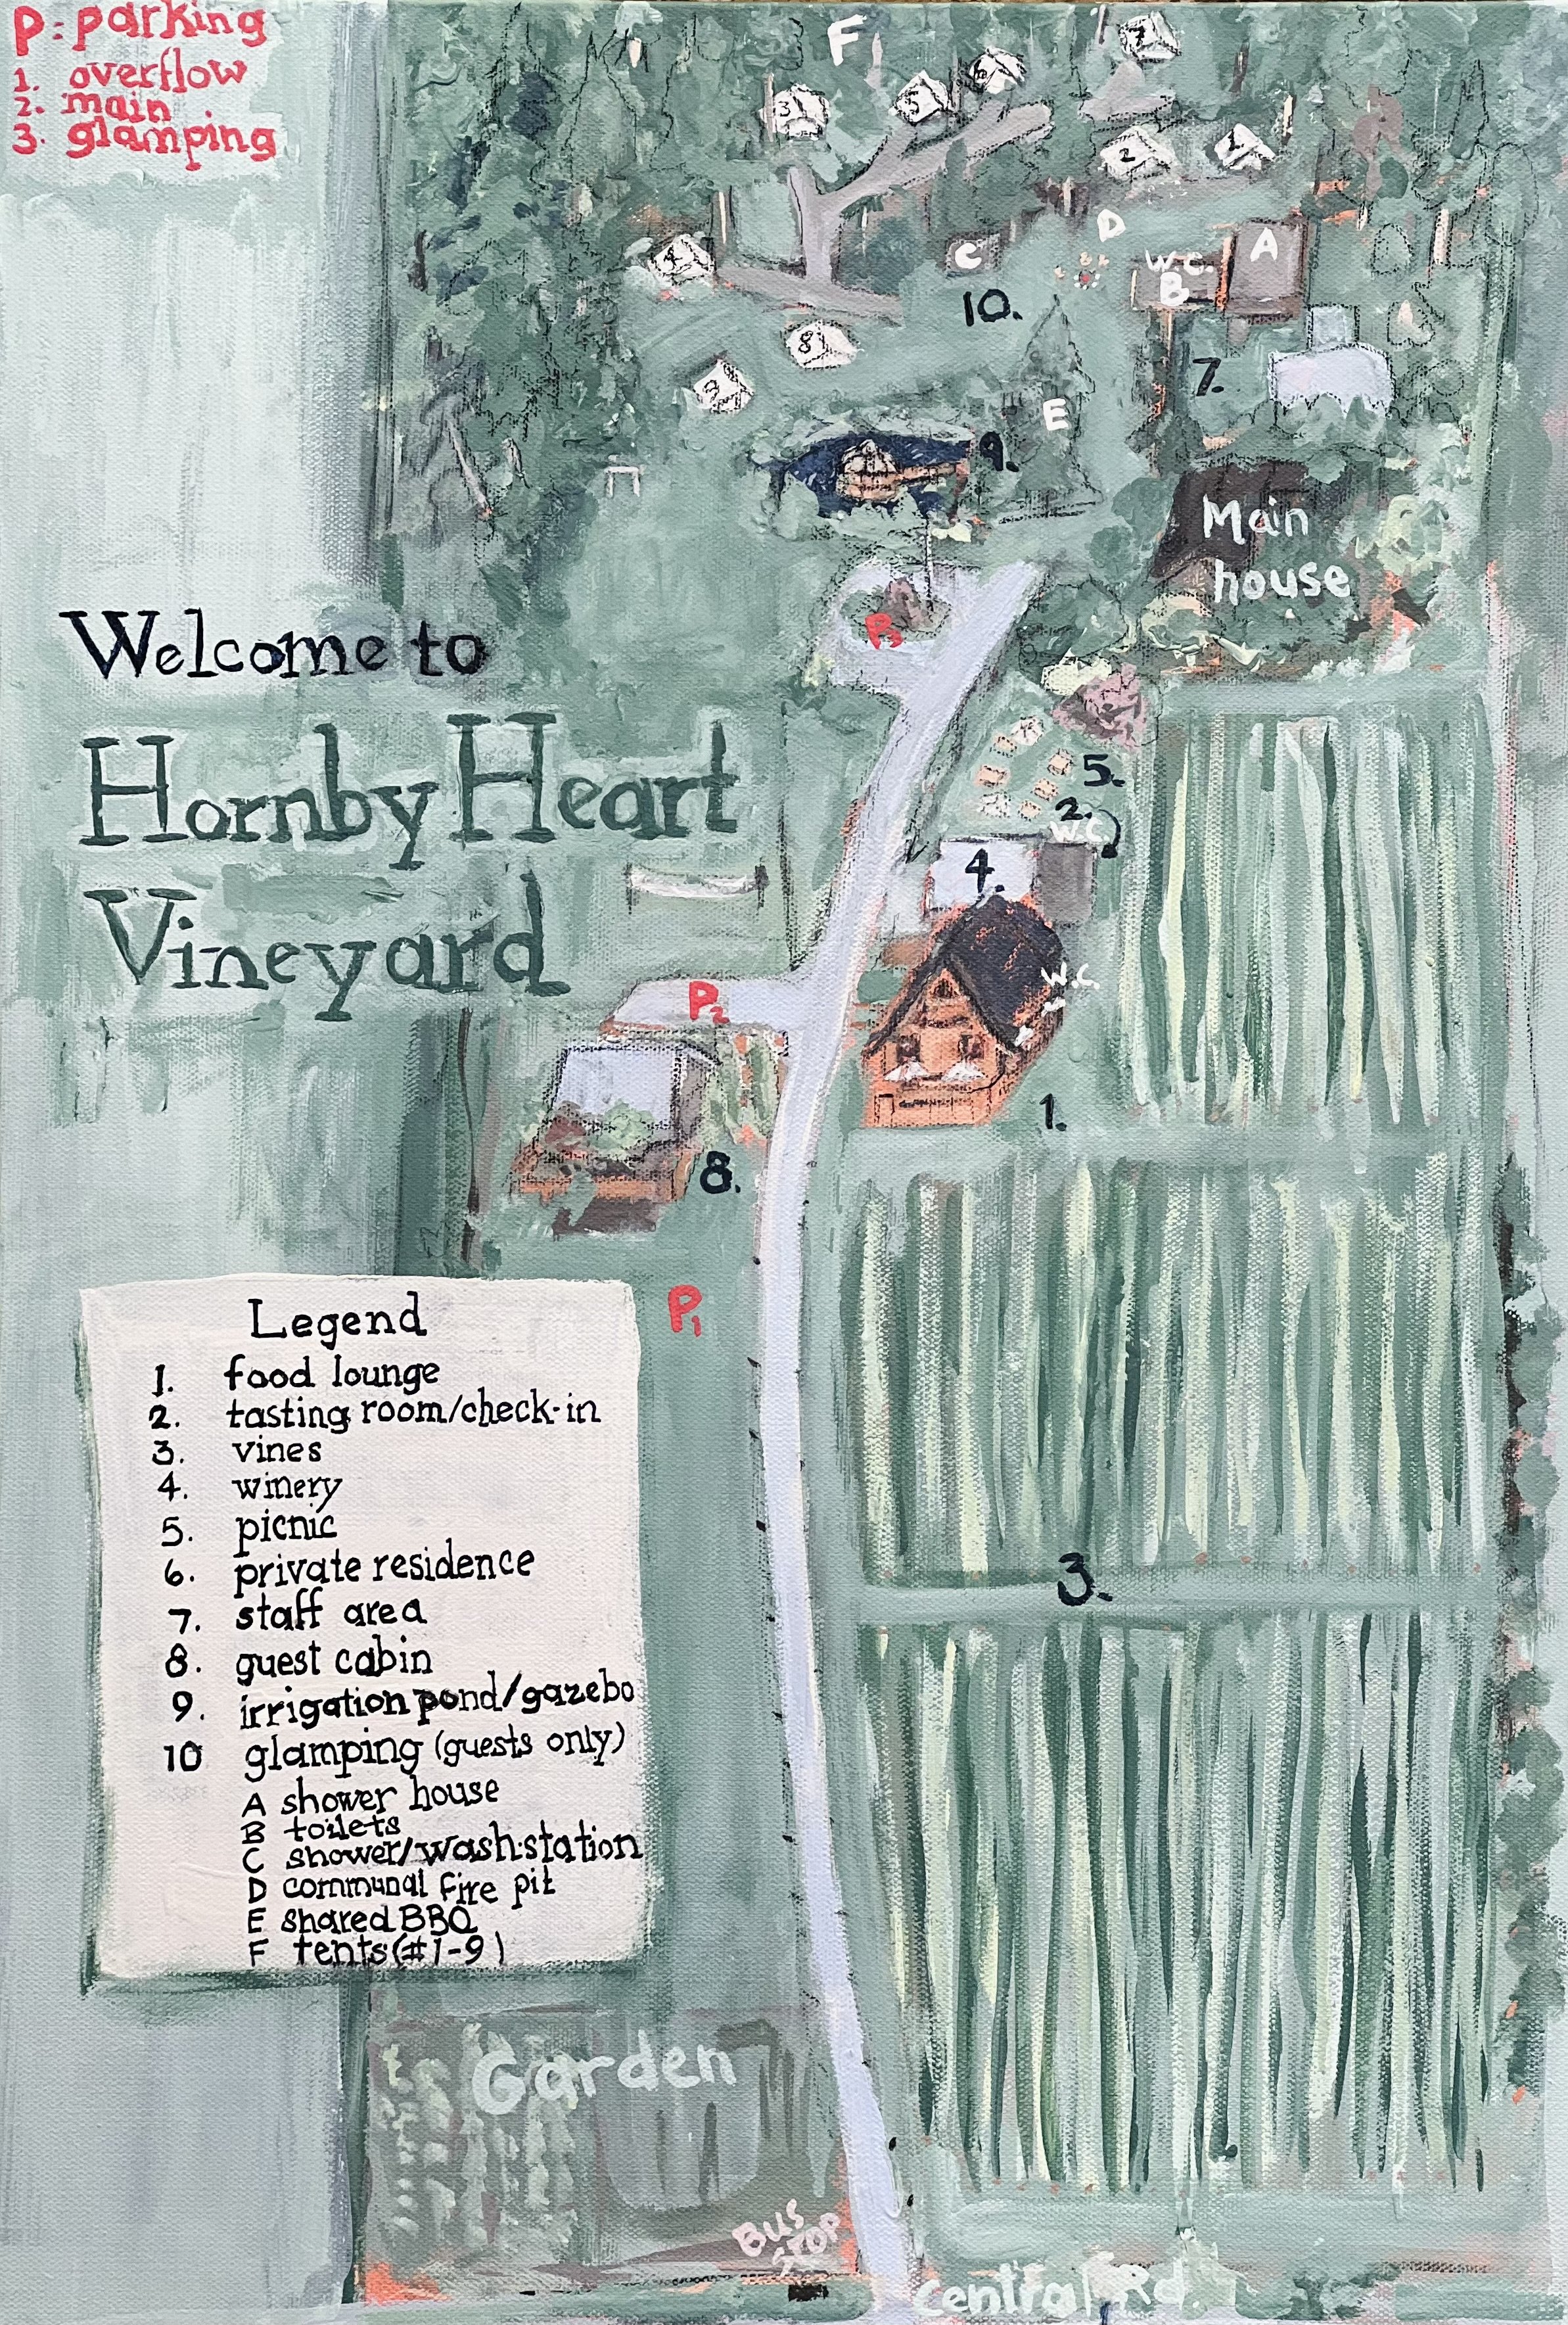 P: parking
1. overflow
2. main
3. glamping
F
7
6
5
3
2
1
D
A
C
W.C.
B
4
10.
8
7.
9
E
9.
Main
house
P3
Welcome to
Hornby Heart
Vineyard
5.
2.
W.C.
4.
W.C.
P2
1.
8.
P1
Legend
1. food lounge
2. tasting room/check-in
3. vines
4. winery
5. picnic
6. private residence
7. staff area
8. guest cabin
9. irrigation pond/gazebo
10 glamping (guests only)
A shower house
B toilets
C shower/wash-station
D communal fire pit
E shared BBQ
F tents (#1-9)
3.
Garden
BUS
STOP
Central Rd.